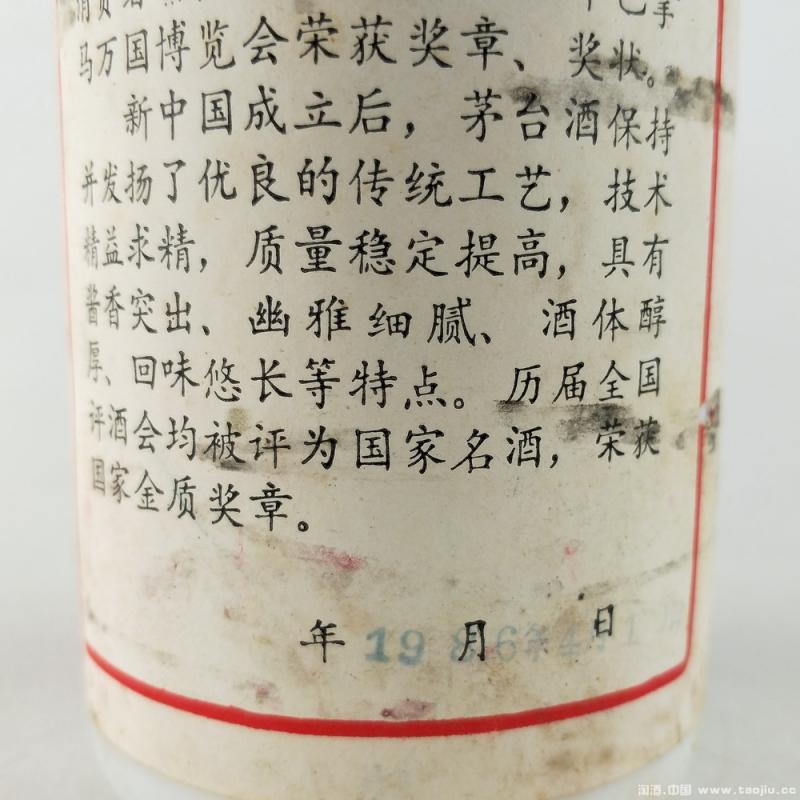 马万国博览会荣获奖章、奖状。
新中国成立后，茅台酒保持
并发扬了优良的传统工艺，技术
精益求精，质量稳定提高，具有
酱香突出、幽雅细腻、酒体醇
厚、回味悠长等特点。历届全国
评酒会均被评为国家名酒，荣获
国家金质奖章。
年 月 日
1986年4月1
淘酒.中国 www.taojiu.cc